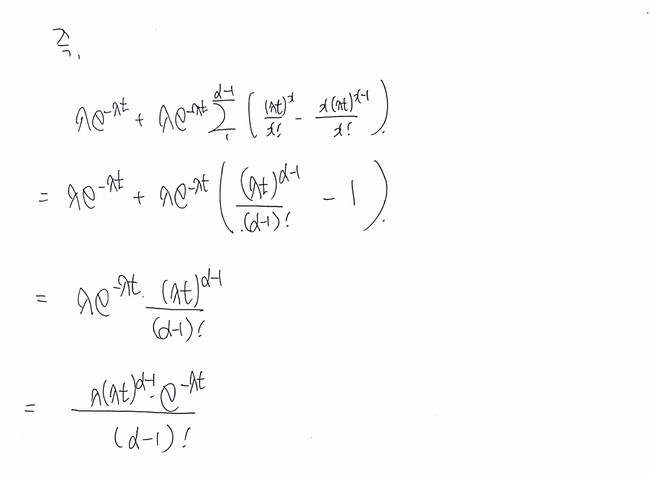 λe^{-λt} + λe^{-λt} \sum_{1}^{α-1} ( \frac{(λt)^x}{x!} - \frac{x(λt)^{x-1}}{x!} )
= λe^{-λt} + λe^{-λt} ( \frac{(λt)^{α-1}}{(α-1)!} - 1 )
= λe^{-λt} · \frac{(λt)^{α-1}}{(α-1)!}
= \frac{λ(λt)^{α-1} · e^{-λt}}{(α-1)!}